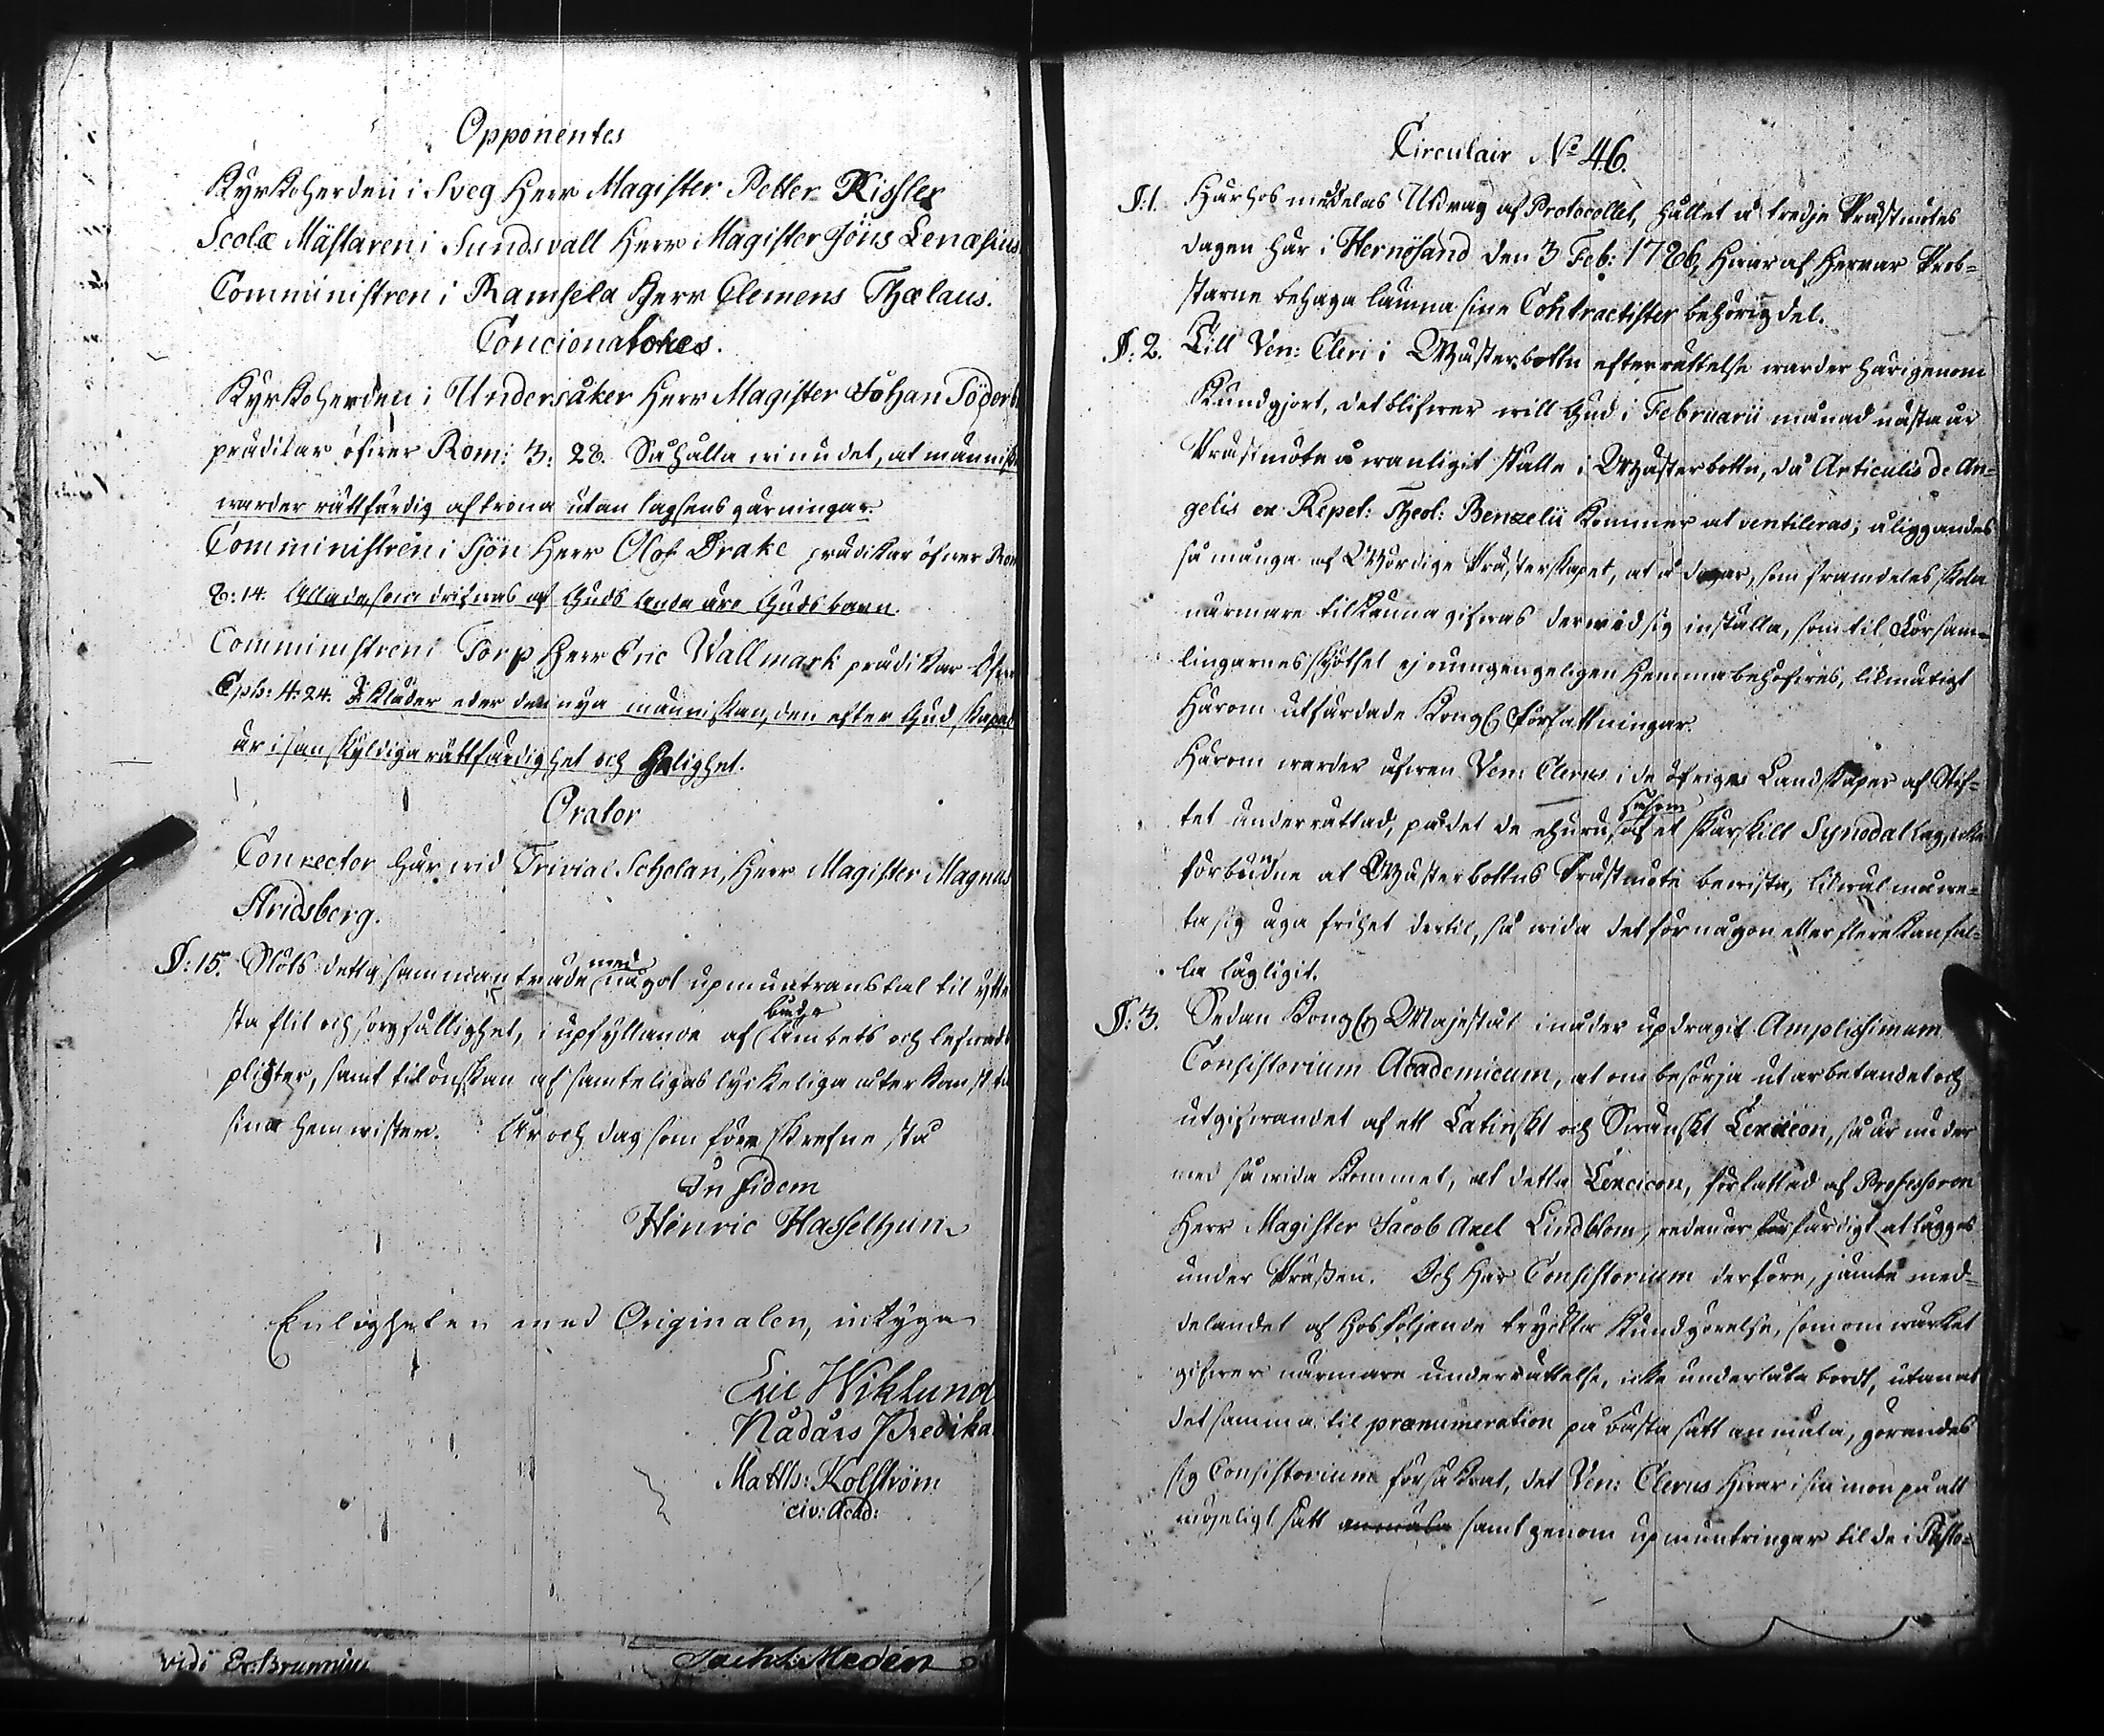 Opponentes
Kyrkoherden i Sveg Herr Magister Petter Rissler
Scolæ Mästaren i Sundsvall Herr Magister Jöns Lenæsius
Comministren i Ramsela Herr Clemens Thelaus.
Concionatores.
Kyrkoherden i Undersåker Herr Magister Johan Söderb
prädikar öfwer Rom: 3: 28. Så hålla wi nu det, at människ
warder rättfärdig af trona utan lagsens gärningar.
Comministren i Sjön Herr Olof Drake prädikar öfwer Rom
8: 14. Alla de som drifwas af Guds Anda äro Guds barn.
Comministren i Torp Herr Eric Wallmark prädikar öfwer
Eph: 4: 24. Ikläder eder den nya människan, den efter Gud skapad
är i sanskyldiga rättfärdighet och helighet.
Orator
Conrector här wid Trivial Scholan, Herr Magister Magnus
Aridsberg.
§: 15. Slöts detta sammanträde med något upmuntranstal til ytter
sta flit och sorgfällighet, i upfyllande af både ämbets och lefnads
pligter, samt tilönskan af samteligas lyckeliga återkomst til
sina hemwister. År och dag som förr skrefne stå
In fidem
Henric Hasselhun
Enligheten med Originalen, intyga
Eric Wiklund
Nådårs Predika
Matth: Kolström
civ: Acad:
vidi Er: Brunnius
Medén
Circulair No 46.
§: 1. Härhos meddelas Utdrag af Protocollet, hållet å tredje Prästmötes
dagen här i Hernösand den 3 Feb: 1786, hwar af Herrar Prob-
starne behaga lämna sine Contractister behörig del.
§: 2. Till Ven: Cleri i Wästerbottn efterrättelse warder härigenom
kundgjort, det blifwer will Gud i Februarii månad nästa år
Prästmöte å wanligit ställe i Wästerbottn, då Articulis de An-
gelis ex Repet: Theol: Benzelii kommer at ventileras; åliggandes
så många af Wördige Prästerskapet, at å dagar, som framdeles skola
närmare tilkänna gifwas derwid sig inställa, som til Församm-
lingarnes skjötsel ej oumgengeligen hemma behöfwes, likmätigt
härom utfärdade Kongl. författningar.
Härom warder äfwen Ven: Clerus i de öfriga Landskaper af Stif-
tet underrättad, på det de ehuru, såsom af et särskilt Synodal lag, icke
förbudne at Wästerbottns Prästmöte bewista, likwäl måwe-
ta sig äga frihet dertil, så wida det för någon eller flere kan fal-
la lägligit.
§: 3. Sedan Kongl. Majestät i nåder updragit Amplissimum
Consistorium Academicum, at ombesörja utarbetandet och
utgifwandet af ett Latinskt och Swänskt Lexicon, så är nu der
med så wida kommet, at detta Lexicon, författad af Professoren
Herr Magister Jacob Axel Lindblom, redan är färdigt at läggas
under Prässen. Och har Consistorium derföre, jämte med-
delandet af hosföljande tryckta Kundgörelse, som om wärket
gifwer närmare underrättelse, icke underlåta bordt, utan at
det samma til prænumeration på bästa sätt anmäla, görandes
sig Consistorium försäkrat, det Ven: Clerus hwar i sin mon på alt
möjeligt sätt anmäla samt genom upmuntringar til de i Pasto-